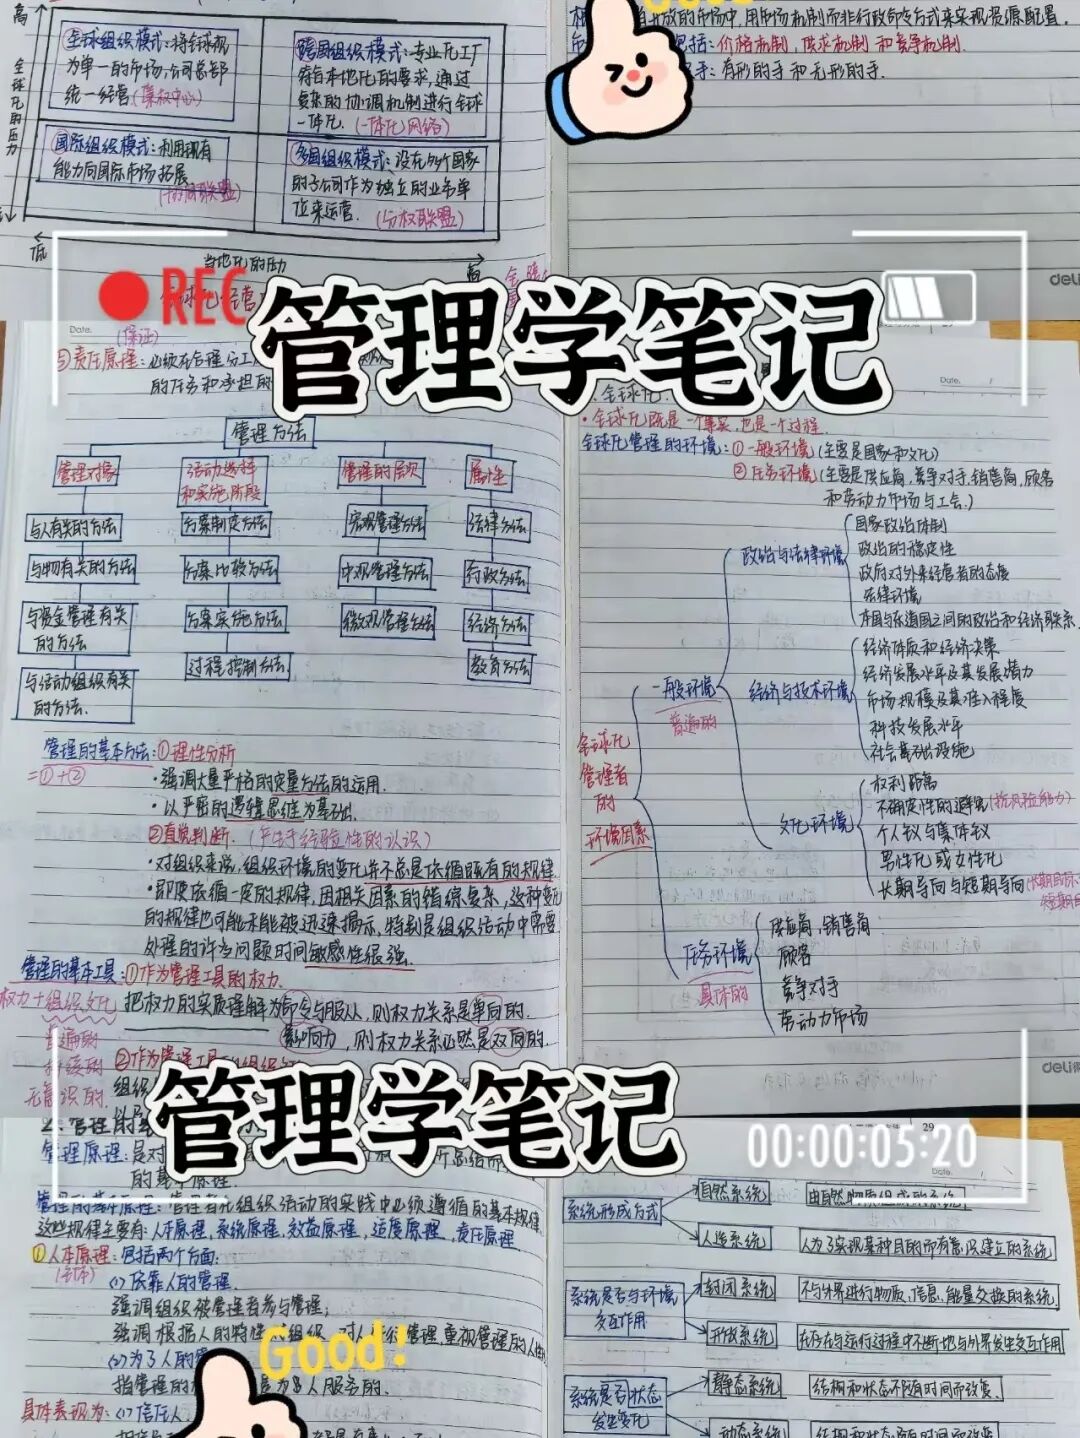 高
全球化的压力
低
①全球组织模式：将全球视
为单一的市场，公司总部
统一经营（集权中心）
②跨国组织模式：专业化工厂
符合本地化的要求，通过
复杂的协调机制进行全球
一体化.（一体化网络）
③国际组织模式：利用现有
能力向国际市场拓展
④多国组织模式：没在外国家
的子公司作为独立的业务单
位来运营.（分权联盟）
当地化的压力
高
开放的市场中，用市场机制而非行政命令方式来实现资源配置.
包括：价格机制，供求机制和竞争机制.
手：有形的手和无形的手.
deli
REC
管理学笔记
Date.
（保证）
⑤责任原理：必须在合理分工
的任务和承担的
管理方法
管理对象
与人有关的方法
与物有关的方法
与资金管理有关
的方法
与活动组织有关
的方法.
活动选择
和实施阶段
方案制定方法
方案比较方法
方案实施方法
过程控制方法
管理的层次
宏观管理方法
中观管理方法
微观管理方法
属性
法律方法
行政方法
经济方法
教育方法
管理的基本方法：①理性分析
=①+②
·强调大量严格的定量方法的运用.
·以严密的逻辑思维为基础.
②直觉判断.（产生于经验性的认识）
·对组织来说，组织环境的变化并不总是依循既有的规律
·即使依循一定的规律，因相关因素的错综复杂，这种变化
的规律也可能未能被迅速揭示，特别是组织活动中需要
处理的许多问题时间敏感性很强.
管理的基本工具：①作为管理工具的权力.
权力+组织文化
把权力的实质理解为命令与服从，则权力关系是单向的.
影响力，则权力关系必然是双向的.
普遍的
持续的
无意识的.
②作为管理工具
组织
Date.
全球化.
·全球化既是一个事实，也是一个过程.
全球化管理的环境：①一般环境（主要是国家和文化）
②任务环境（主要是供应商，竞争对手，销售商，顾客
和劳动力市场与工会.）
全球化
管理者
的
环境因素
一般环境
普遍的
政治与法律环境
国家政治体制
政治的稳定性
政府对外来经营者的态度
法律环境
本国与东道国之间的政治和经济联系
经济与技术环境
经济体质和经济决策
经济发展水平及其发展潜力
市场规模及其准入程度
科技发展水平
社会基础设施
文化环境
权利距离
不确定性的避免（抗风险能力）
个人主义与集体主义
男性化或女性化
长期导向与短期导向
任务环境
具体的
供应商，销售商
顾客
竞争对手
劳动力市场
deli
管理学笔记
00:00:05:20
29
Date.
管理原理：是对
的基本原理.
管理的基本原理：管理者在组织活动的实践中必须遵循的基本规律.
这些规律主要有：人本原理，系统原理，效益原理，适度原理，责任原理
①人本原理：包括两个方面：
(1)依靠人的管理.
强调组织被管理者参与管理；
强调根据人的特性
管理，重视管理的人性
(2)为了人的管
指管理的
是为人服务的.
具体表现为：(1)信任人.
Good!
系统形成方式
自然系统
由自然物质组成的系统
人造系统
人为了实现某种目的而有意识建立的系统
系统是否与环境
交互作用
封闭系统
不与外界进行物质、信息、能量交换的系统
开放系统
在存在与运行过程中不断地与外界发生交互作用
系统是否状态
发生变化
静态系统
结构和状态不随时间而改变.
动态系统
结构和状态随时间而改变